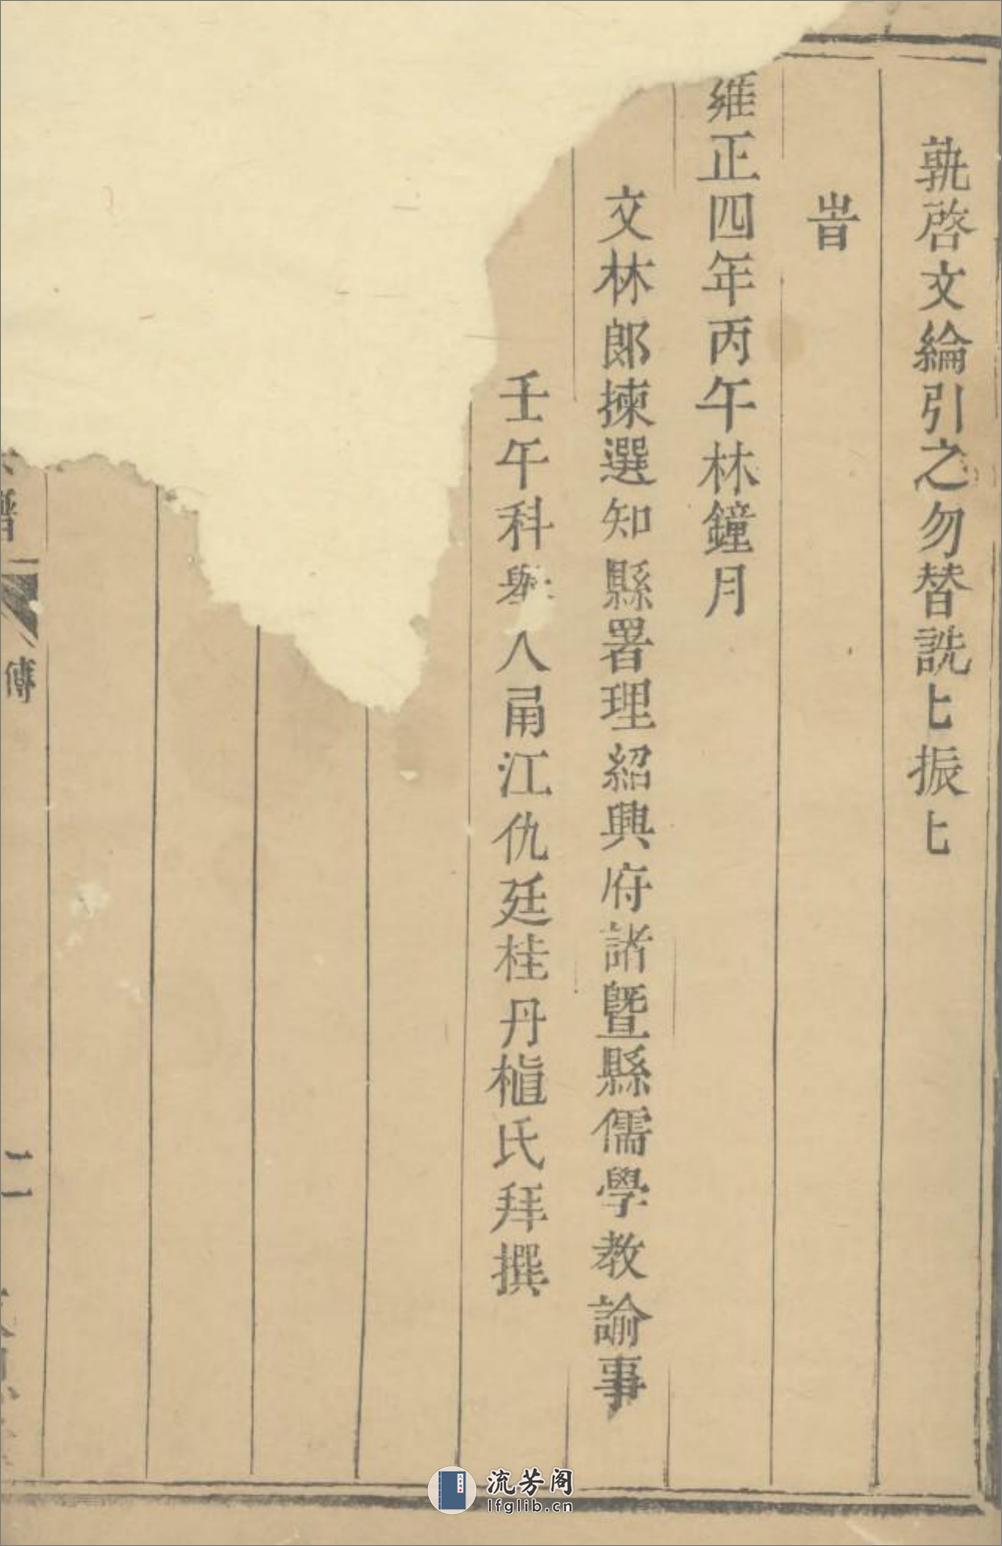 孰啓文綸引之勿替詵匕振匕
旹
雍正四年丙午林鐘月
文林郎揀選知縣署理紹興府諸曁縣儒學教諭事
壬午科舉人甬江仇廷桂丹植氏拜撰
譜
傳
二
流芳阁
lfglib.cn